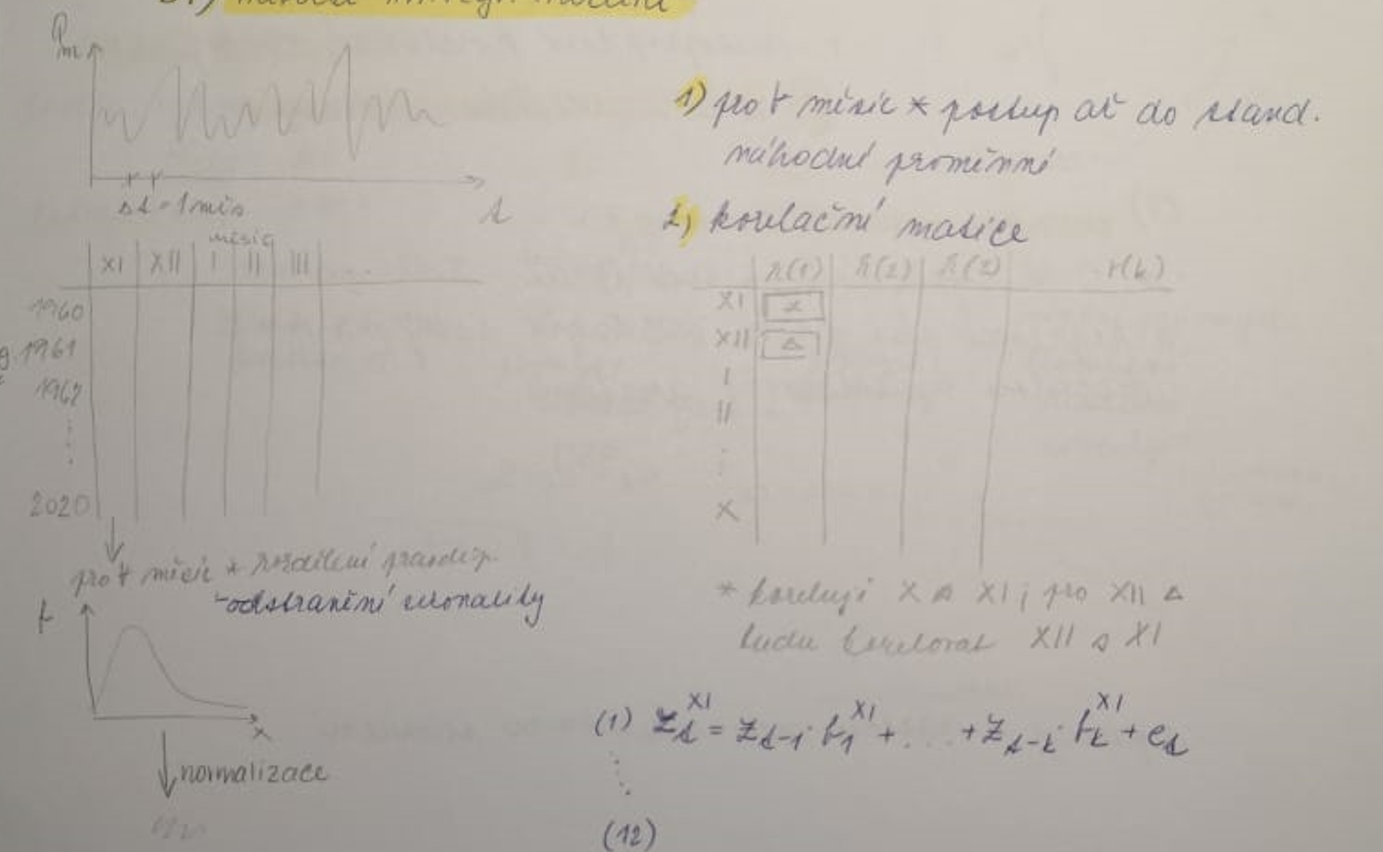 Qm
Δt = 1 měs.
t
měsíc
XI XII I II III ...
1960
1961
1962
2020
pro ∀ měsíc * rozdělení pravděp.
- odstranění sezonality
f
x
normalizace
1) pro ∀ měsíc * postup až do stand.
náhodné proměnné
2) korelační matice
r(1) r(2) r(3) r(k)
XI
XII Δ
I
II
X
* koreluji X a XI; pro XII Δ
budu korelovat XII a XI
(1) z_t^XI = z_t-1 · b_1^XI + ... + z_t-k · b_k^XI + e_t
(12)